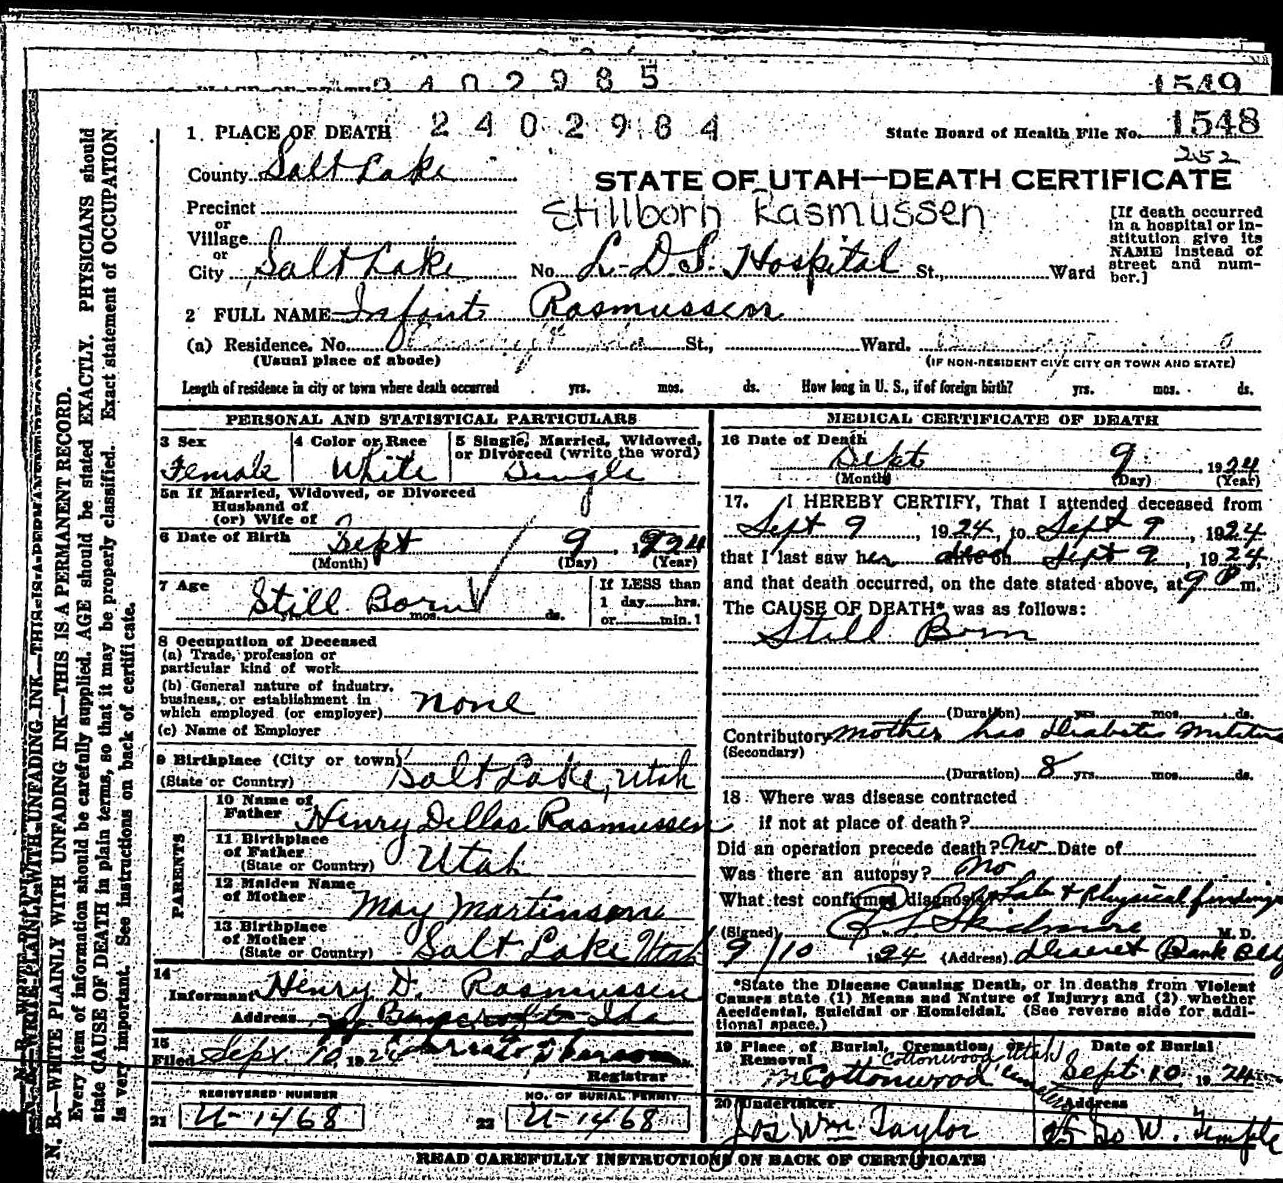 2402985
1549
1 PLACE OF DEATH 2402984
State Board of Health File No. 1548
252
County Salt Lake
STATE OF UTAH—DEATH CERTIFICATE
Precinct
Stillborn Rasmussen
or
Village
or
City Salt Lake No. L.D.S. Hospital St., Ward
[If death occurred
in a hospital or in-
stitution give its
NAME instead of
street and num-
ber.]
2 FULL NAME Infant Rasmussen
(a) Residence, No. St., Ward.
(Usual place of abode) (IF NON-RESIDENT GIVE CITY OR TOWN AND STATE)
Length of residence in city or town where death occurred yrs. mos. ds. How long in U. S., if of foreign birth? yrs. mos. ds.
PERSONAL AND STATISTICAL PARTICULARS
3 Sex Female
4 Color or Race White
5 Single, Married, Widowed,
or Divorced (write the word)
Single
5a If Married, Widowed, or Divorced
Husband of
(or) Wife of
6 Date of Birth Sept 9, 1924
(Month) (Day) (Year)
7 Age
Still Born
yrs. mos. ds.
If LESS than
1 day hrs.
or min.
8 Occupation of Deceased
(a) Trade, profession or
particular kind of work
(b) General nature of industry,
business, or establishment in
which employed (or employer) none
(c) Name of Employer
9 Birthplace (City or town)
(State or Country) Salt Lake, Utah
PARENTS
10 Name of
Father Henry Dellas Rasmussen
11 Birthplace
of Father
(State or Country) Utah
12 Maiden Name
of Mother May Martinsen
13 Birthplace
of Mother
(State or Country) Salt Lake Utah
14
Informant Henry D. Rasmussen
Address Ida
15
Filed Sept 10 1924
Registrar
REGISTERED NUMBER
21 U-1468
NO. OF BURIAL PERMIT
22 U-1468
MEDICAL CERTIFICATE OF DEATH
16 Date of Death
Sept 9, 1924
(Month) (Day) (Year)
17. I HEREBY CERTIFY, That I attended deceased from
Sept 9, 1924, to Sept 9, 1924
that I last saw her alive on Sept 9, 1924,
and that death occurred, on the date stated above, at 9 P m.
The CAUSE OF DEATH* was as follows:
Still Born
(Duration) yrs. mos. ds.
Contributory mother has Diabetes
(Secondary)
(Duration) 8 yrs. mos. ds.
18 Where was disease contracted
if not at place of death?
Did an operation precede death? No Date of
Was there an autopsy? No
What test confirmed diagnosis? Lab & Physical findings
(Signed) Skidmore M. D.
9/10 1924 (Address) Deseret Bank Bldg
*State the Disease Causing Death, or in deaths from Violent
Causes state (1) Means and Nature of Injury; and (2) whether
Accidental, Suicidal or Homicidal. (See reverse side for addi-
tional space.)
19 Place of Burial, Cremation, or
Removal Cottonwood Utah
Cottonwood Cemetery
Date of Burial
Sept 10 1924
20 Undertaker
Jos Wm Taylor
Address
25 So W. Temple
READ CAREFULLY INSTRUCTIONS ON BACK OF CERTIFICATE
N. B.—WRITE PLAINLY WITH UNFADING INK—THIS IS A PERMANENT RECORD.
Every item of information should be carefully supplied. AGE should be stated EXACTLY. PHYSICIANS should
state CAUSE OF DEATH in plain terms, so that it may be properly classified. Exact statement of OCCUPATION
is very important. See instructions on back of certificate.